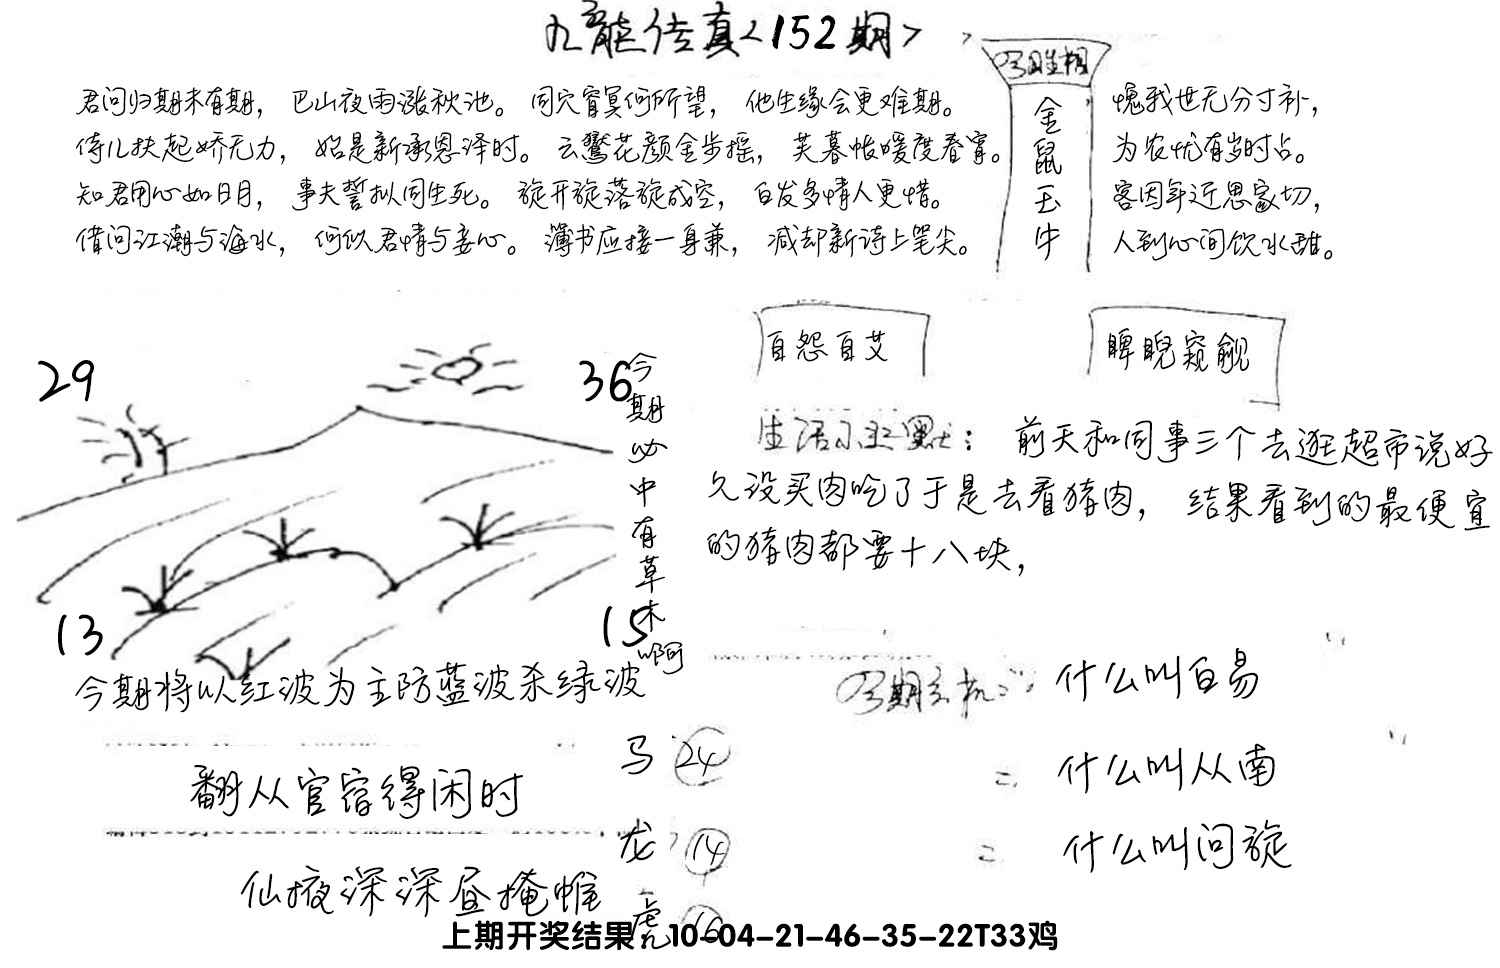 九龍传真<152期>
君问归期未有期，巴山夜雨涨秋池。同穴窅冥何所望，他生缘会更难期。
侍儿扶起娇无力，始是新承恩泽时。云鬓花颜金步摇，芙蓉帐暖度春宵。
知君用心如日月，事夫誓拟同生死。旋开旋落旋成空，白发多情人更惜。
借问江潮与海水，何似君情与妾心。薄书应接一身兼，减却新诗上笔尖。
今期生相
金鼠玉牛
愧我世无分寸补，
为农忧有岁时占。
客因年近思家切，
人到心间饮水甜。
自怨自艾
睥睨窥觎
29
36
13
15
今期必中有草木啊
生活小幽默：前天和同事三个去逛超市说好
久没买肉吃了于是去看猪肉，结果看到的最便宜
的猪肉都要十八块，
今期将以红波为主防蓝波杀绿波
今期玄机：什么叫白易
=什么叫从南
=什么叫问旋
翻从官宿得闲时
仙掖深深昼掩帷
马 24
龙 14
虎 16
上期开奖结果：10-04-21-46-35-22T33鸡